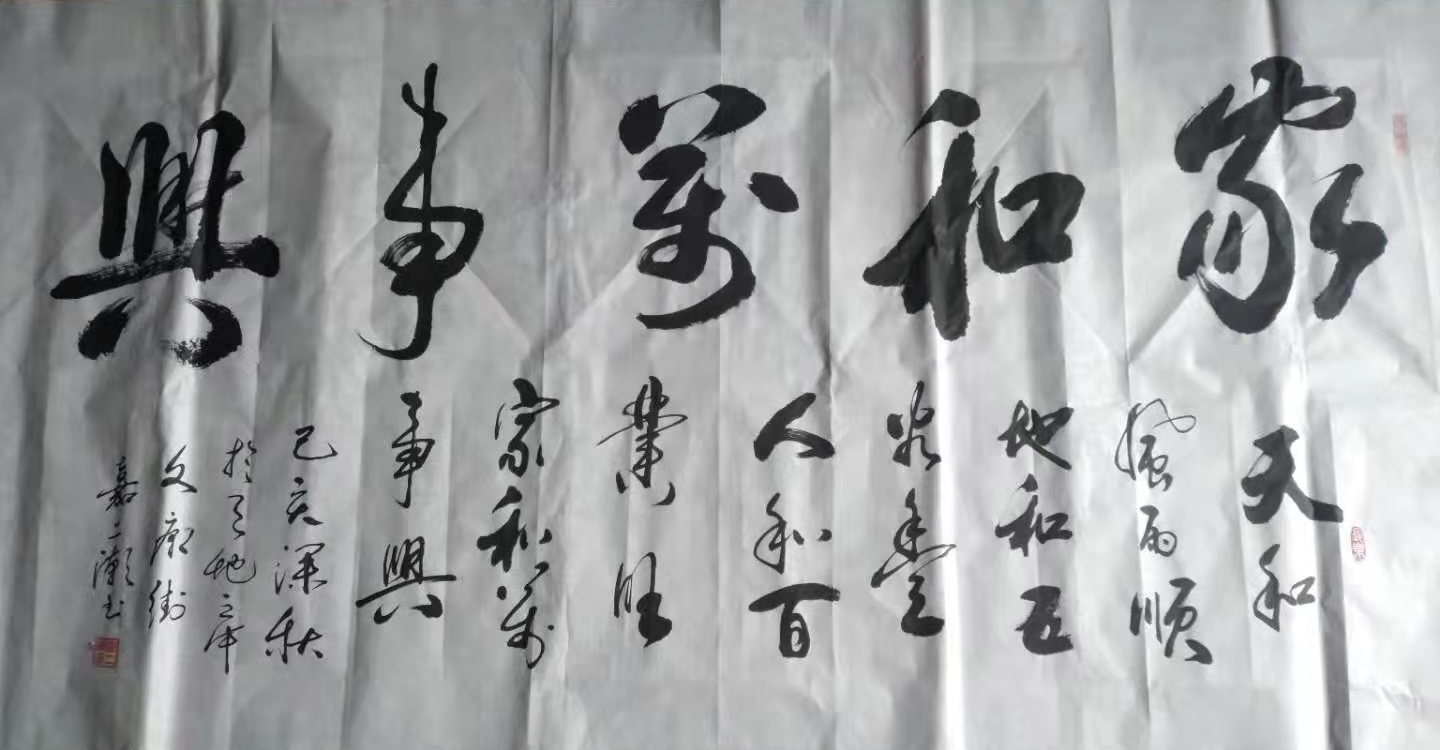 家和萬事興
天和
風雨順
地和五
谷豐登
人和百
業旺
家和萬
事興
己亥深秋
於天地之中
文廟街
嘉书